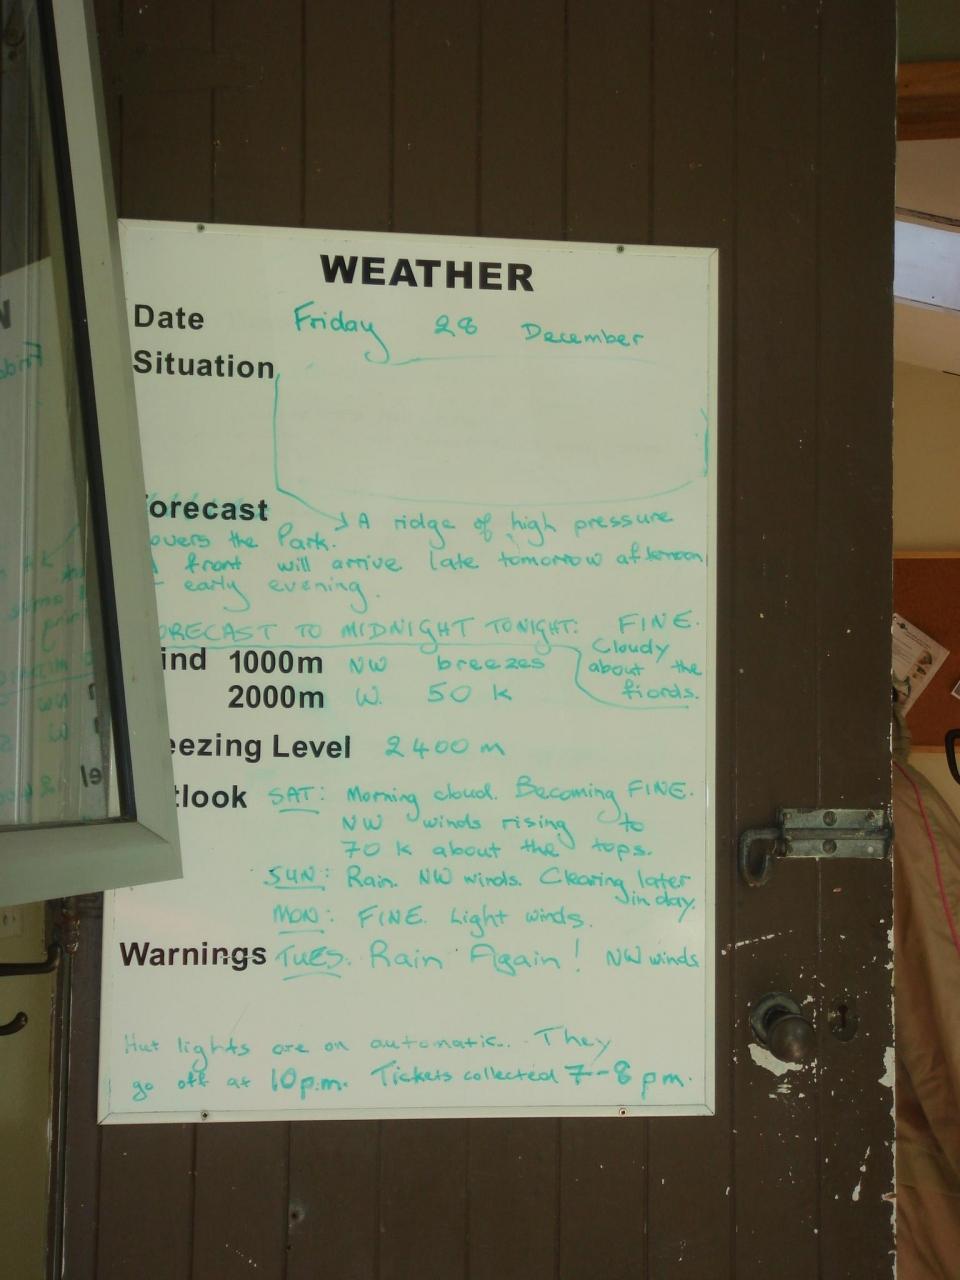 WEATHER
Date Friday 28 December
Situation
orecast → A ridge of high pressure
overs the Park.
front will arrive late tomorrow afternoon
early evening.
ORECAST TO MIDNIGHT TONIGHT: FINE.
Cloudy
about the
fiords.
ind 1000m NW breezes
2000m W. 50 k
eezing Level 2400 m
tlook SAT: Morning cloud. Becoming FINE.
NW winds rising to
70 k about the tops.
SUN: Rain. NW winds. Clearing later
in day.
MON: FINE. Light winds.
Warnings TUES. Rain Again! NW winds
Hut lights are on automatic... They
go off at 10 p.m. Tickets collected 7-8 pm.